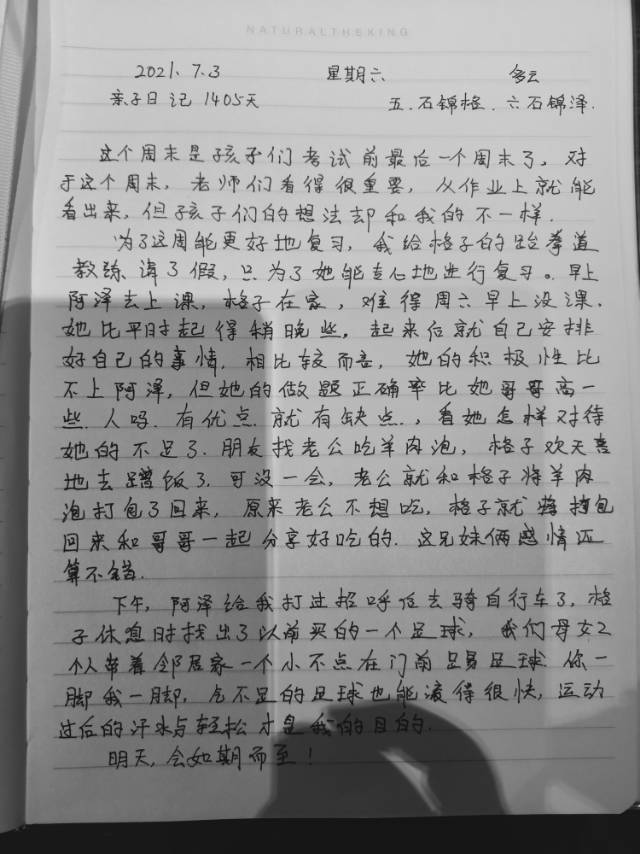 NATURALTHEKING
2021.7.3 星期六 多云
亲子日记 1405天 五.石锦格.六石锦泽.
这个周末是孩子们考试前最后一个周末了,对
于这个周末,老师们看得很重要,从作业上就能
看出来,但孩子们的想法却和我的不一样.
为了这周能更好地复习,我给格子的跆拳道
教练请了假,只为了她能专心地进行复习。早上
阿泽去上课,格子在家,难得周六早上没课.
她比平时起得稍晚些,起来后就自己安排
好自己的事情.相比较而言,她的积极性比
不上阿泽,但她的做题正确率比她哥哥高一
些.人吗.有优点就有缺点.,看她怎样对待
她的不足了.朋友找老公吃羊肉泡,格子欢天喜
地去蹭饭了.可没一会,老公就和格子将羊肉
泡打包了回来,原来老公不想吃,格子就打包
回来和哥哥一起分享好吃的.这兄妹俩感情还
算不错.
下午,阿泽给我打过招呼后去骑自行车了,格
子休息时找出了以前买的一个足球,我们母女2
个人带着邻居家一个小不点在门前踢足球.你一
脚我一脚,气不足的足球也能滚得很快,运动
过后的汗水与轻松才是我的目的.
明天,会如期而至!